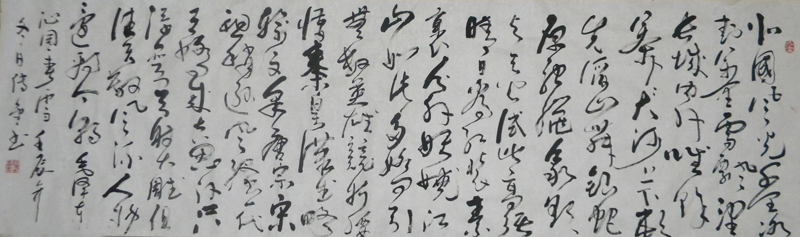 北国风光千里冰
封万里雪飘望
长城内外惟馀
莽莽大河上下顿
失滔滔山舞银蛇
原驰蜡象欲
与天公试比高须
晴日看红装素
裹分外妖娆江
山如此多娇引
无数英雄竞折腰
惜秦皇汉武略
输文采唐宗宋
祖稍逊风骚一代
天骄成吉思汗只
识弯弓射大雕俱
往矣数风流人物
还看今朝 毛泽东
沁园春雪 壬辰年
冬日